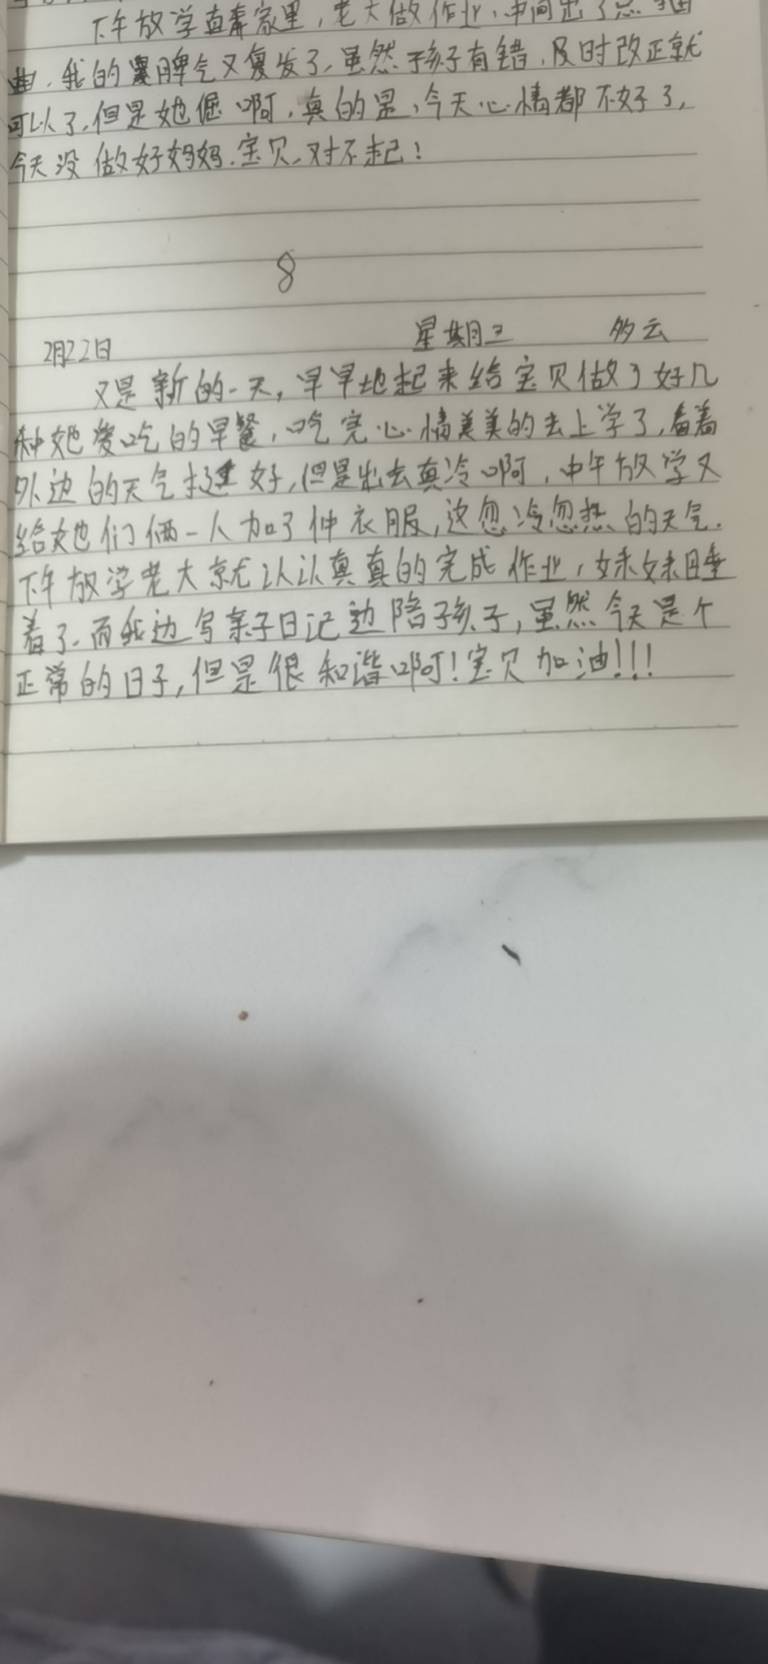 下午放学直奔家里，老大做作业，中间出了点
曲，我的臭脾气又复发了，虽然孩子有错，及时改正就
可以了，但是她倔啊，真的是，今天心情都不好了，
今天没做好妈妈，宝贝，对不起！
8
2月22日 星期三 多云
又是新的一天，早早地起来给宝贝做了好几
种她爱吃的早餐，吃完心情美美的去上学了，看着
外边的天气挺好，但是出去真冷啊，中午放学又
给她们俩一人加了件衣服，这忽冷忽热的天气．
下午放学老大就认认真真的完成作业，妹妹睡
着了．而我边写亲子日记边陪孩子，虽然今天是个
正常的日子，但是很和谐啊！宝贝加油！！！